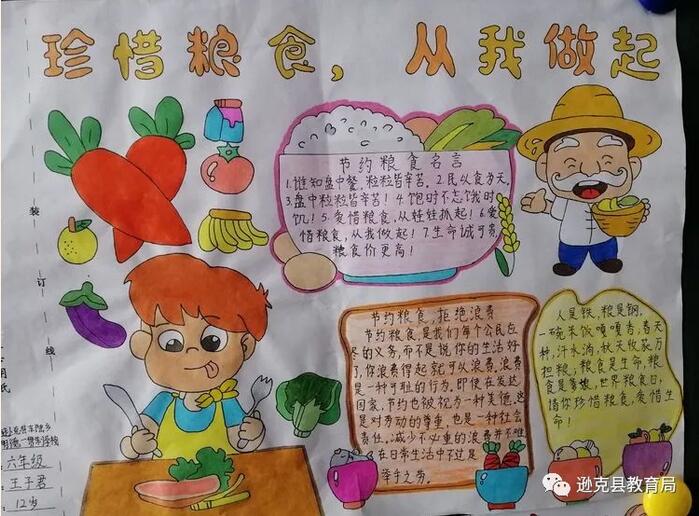 珍惜粮食，从我做起
节约粮食名言
1.谁知盘中餐，粒粒皆辛苦。2.民以食为天。
3.盘中粒粒皆辛苦！4.饱时不忘饿时
饥！5.爱惜粮食，从娃娃抓起！6.爱
惜粮食，从我做起！7.生命诚可贵，
粮食价更高！
节约粮食，拒绝浪费
节约粮食，是我们每个公民应
尽的义务，而不是说你的生活好
了，你浪费得起就可以浪费，浪费
是一种可耻的行为，即使在发达
国家，节约也被视为一种美德，这
是对劳动的尊重，也是一种社会
责任。减少不必要的浪费并不难，
在日常生活中不过是
举手之劳。
人是铁，粮是钢。
一碗米饭嘎嘎香，春天
种，汗水淌，秋天收获万
担粮，粮食是生命，粮
食是爹娘，世界粮食日，
请你珍惜粮食，爱惜生
命！
装
订
线
六年级
王子君
12岁
逊克县教育局